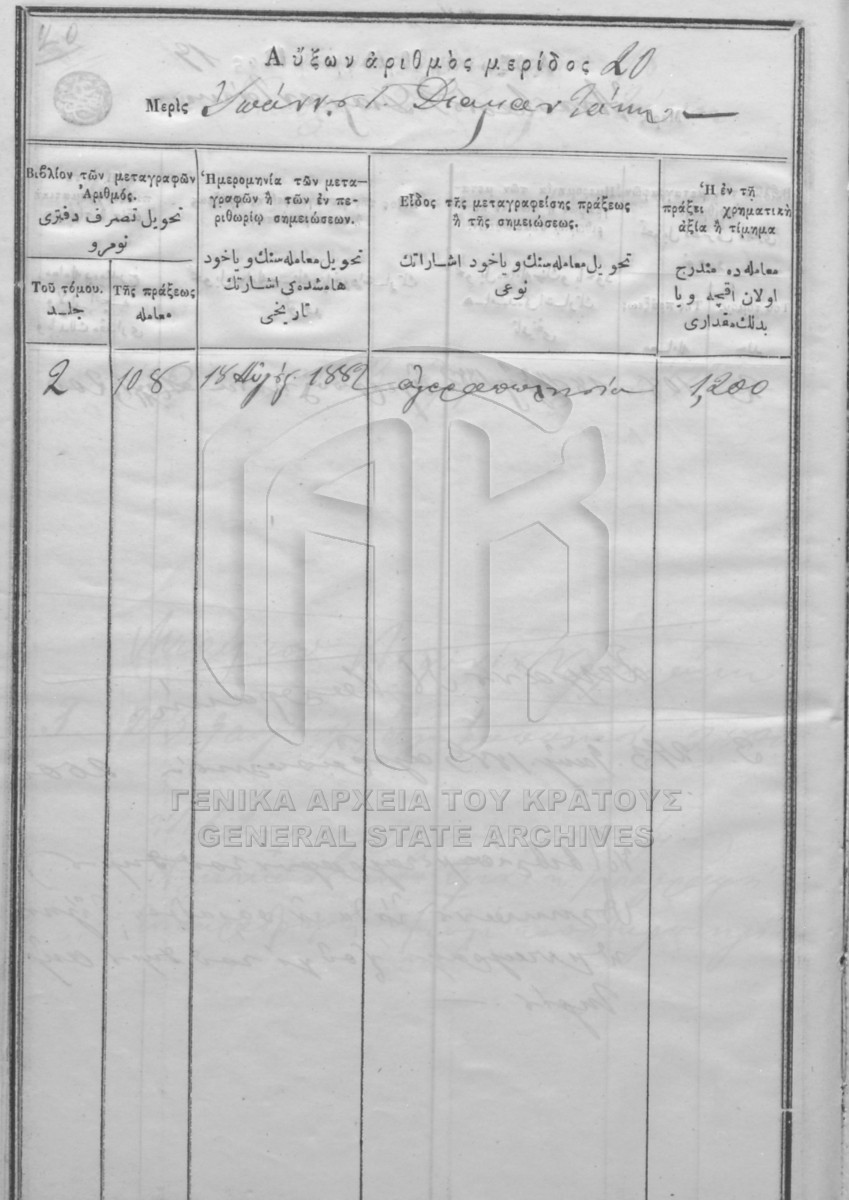 20
Αὔξων ἀριθμὸς μερίδος 20
Μερὶς Ἰωάννης Γ. Διαμαντάκης
Βιβλίον τῶν μεταγραφῶν
Ἀριθμός.
تحويل تصرف دفترى
نومرو
Τοῦ τόμου.
جلد
Τῆς πράξεως
معامله
Ἡμερομηνία τῶν μετα-
γραφῶν ἢ τῶν ἐν πε-
ριθωρίῳ σημειώσεων.
تحويل معامله سنك و ياخود
هامشده كى اشارتك
تاريخى
Εἶδος τῆς μεταγραφείσης πράξεως
ἢ τῆς σημειώσεως.
تحويل معامله سنك و ياخود اشاراتك
نوعى
Ἡ ἐν τῇ
πράξει χρηματικὴ
ἀξία ἢ τίμημα
معامله ده مندرج
اولان اقچه و يا
بدلك مقدارى
2 108 18 Αὐγούσ. 1882 ἀγοραπωλησία 1,200
ΓΕΝΙΚΑ ΑΡΧΕΙΑ ΤΟΥ ΚΡΑΤΟΥΣ
GENERAL STATE ARCHIVES